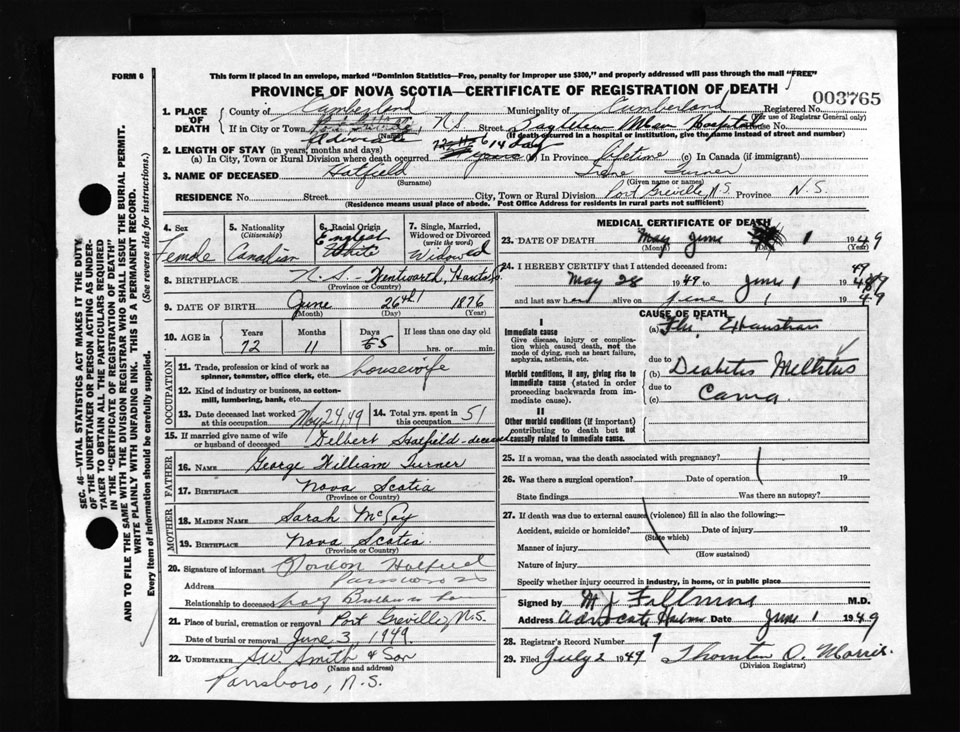 FORM 6
This form if placed in an envelope, marked "Dominion Statistics—Free, penalty for improper use $300," and properly addressed will pass through the mail "FREE"
PROVINCE OF NOVA SCOTIA—CERTIFICATE OF REGISTRATION OF DEATH
003765
1. PLACE OF DEATH
County of Cumberland Municipality of Cumberland Registered No.
(For use of Registrar General only)
If in City or Town Advocate, N.S. Street Hospital House No.
(Name) (If death occurred in a hospital or institution, give the name instead of street and number)
2. LENGTH OF STAY (in years, months and days)
(a) In City, Town or Rural Division where death occurred 14 days (b) In Province Lifetime (c) In Canada (if immigrant)
3. NAME OF DECEASED Hatfield Irene Turner
(Surname) (Given name or names)
RESIDENCE No. Street City, Town or Rural Division Port Greville, N.S. Province N.S.
(Residence means usual place of abode. Post Office Address for residents in rural parts not sufficient)
4. Sex Female
5. Nationality (Citizenship) Canadian
6. Racial Origin English White
7. Single, Married, Widowed or Divorced (write the word) Widowed
8. BIRTHPLACE N.S. - Wentworth, Hants Co.
(Province or Country)
9. DATE OF BIRTH June 26th 1876
(Month) (Day) (Year)
10. AGE in Years 72 Months 11 Days 5 If less than one day old hrs. or min.
OCCUPATION
11. Trade, profession or kind of work as spinner, teamster, office clerk, etc. housewife
12. Kind of industry or business, as cotton-mill, lumbering, bank, etc.
13. Date deceased last worked at this occupation May 24, 49
14. Total yrs. spent in this occupation 51
15. If married give name of wife or husband of deceased Delbert Hatfield - deceased
FATHER
16. NAME George William Turner
17. BIRTHPLACE Nova Scotia
(Province or Country)
MOTHER
18. MAIDEN NAME Sarah McCay
19. BIRTHPLACE Nova Scotia
(Province or Country)
20. Signature of informant Gordon Hatfield
Address Parrsboro NS
Relationship to deceased Brother in law
21. Place of burial, cremation or removal Port Greville, N.S.
Date of burial or removal June 3, 1949
22. UNDERTAKER S.W. Smith & Son
(Name and address)
Parrsboro, N.S.
MEDICAL CERTIFICATE OF DEATH
23. DATE OF DEATH June 1 1949
(Month) (Day) (Year)
24. I HEREBY CERTIFY that I attended deceased from:
May 28 1949 to June 1 1949
and last saw her alive on June 1 1949
CAUSE OF DEATH
I
Immediate cause
Give disease, injury or complication which caused death, not the mode of dying, such as heart failure, asphyxia, asthenia, etc.
(a) Flu Exhaustion
due to
Morbid conditions, if any, giving rise to immediate cause (stated in order proceeding backwards from immediate cause).
(b) Diabetes Mellitus
due to
(c) Coma
II
Other morbid conditions (if important) contributing to death but not causally related to immediate cause.
25. If a woman, was the death associated with pregnancy?
26. Was there a surgical operation? Date of operation 19
State findings Was there an autopsy?
27. If death was due to external causes (violence) fill in also the following:—
Accident, suicide or homicide? Date of injury 19
(State which)
Manner of injury
(How sustained)
Nature of injury
Specify whether injury occurred in industry, in home, or in public place
Signed by M J Fillmore M.D.
Address Advocate Harbour Date June 1 1949
28. Registrar's Record Number 7
29. Filed July 2 1949 Thornton O. Morris
(Division Registrar)
SEC. 46—VITAL STATISTICS ACT MAKES IT THE DUTY OF THE UNDERTAKER OR PERSON ACTING AS UNDERTAKER TO OBTAIN ALL THE PARTICULARS REQUIRED IN THE "CERTIFICATE OF REGISTRATION OF DEATH" AND TO FILE THE SAME WITH THE DIVISION REGISTRAR WHO SHALL ISSUE THE BURIAL PERMIT.
WRITE PLAINLY WITH UNFADING INK. THIS IS A PERMANENT RECORD.
Every item of information should be carefully supplied. (See reverse side for instructions.)